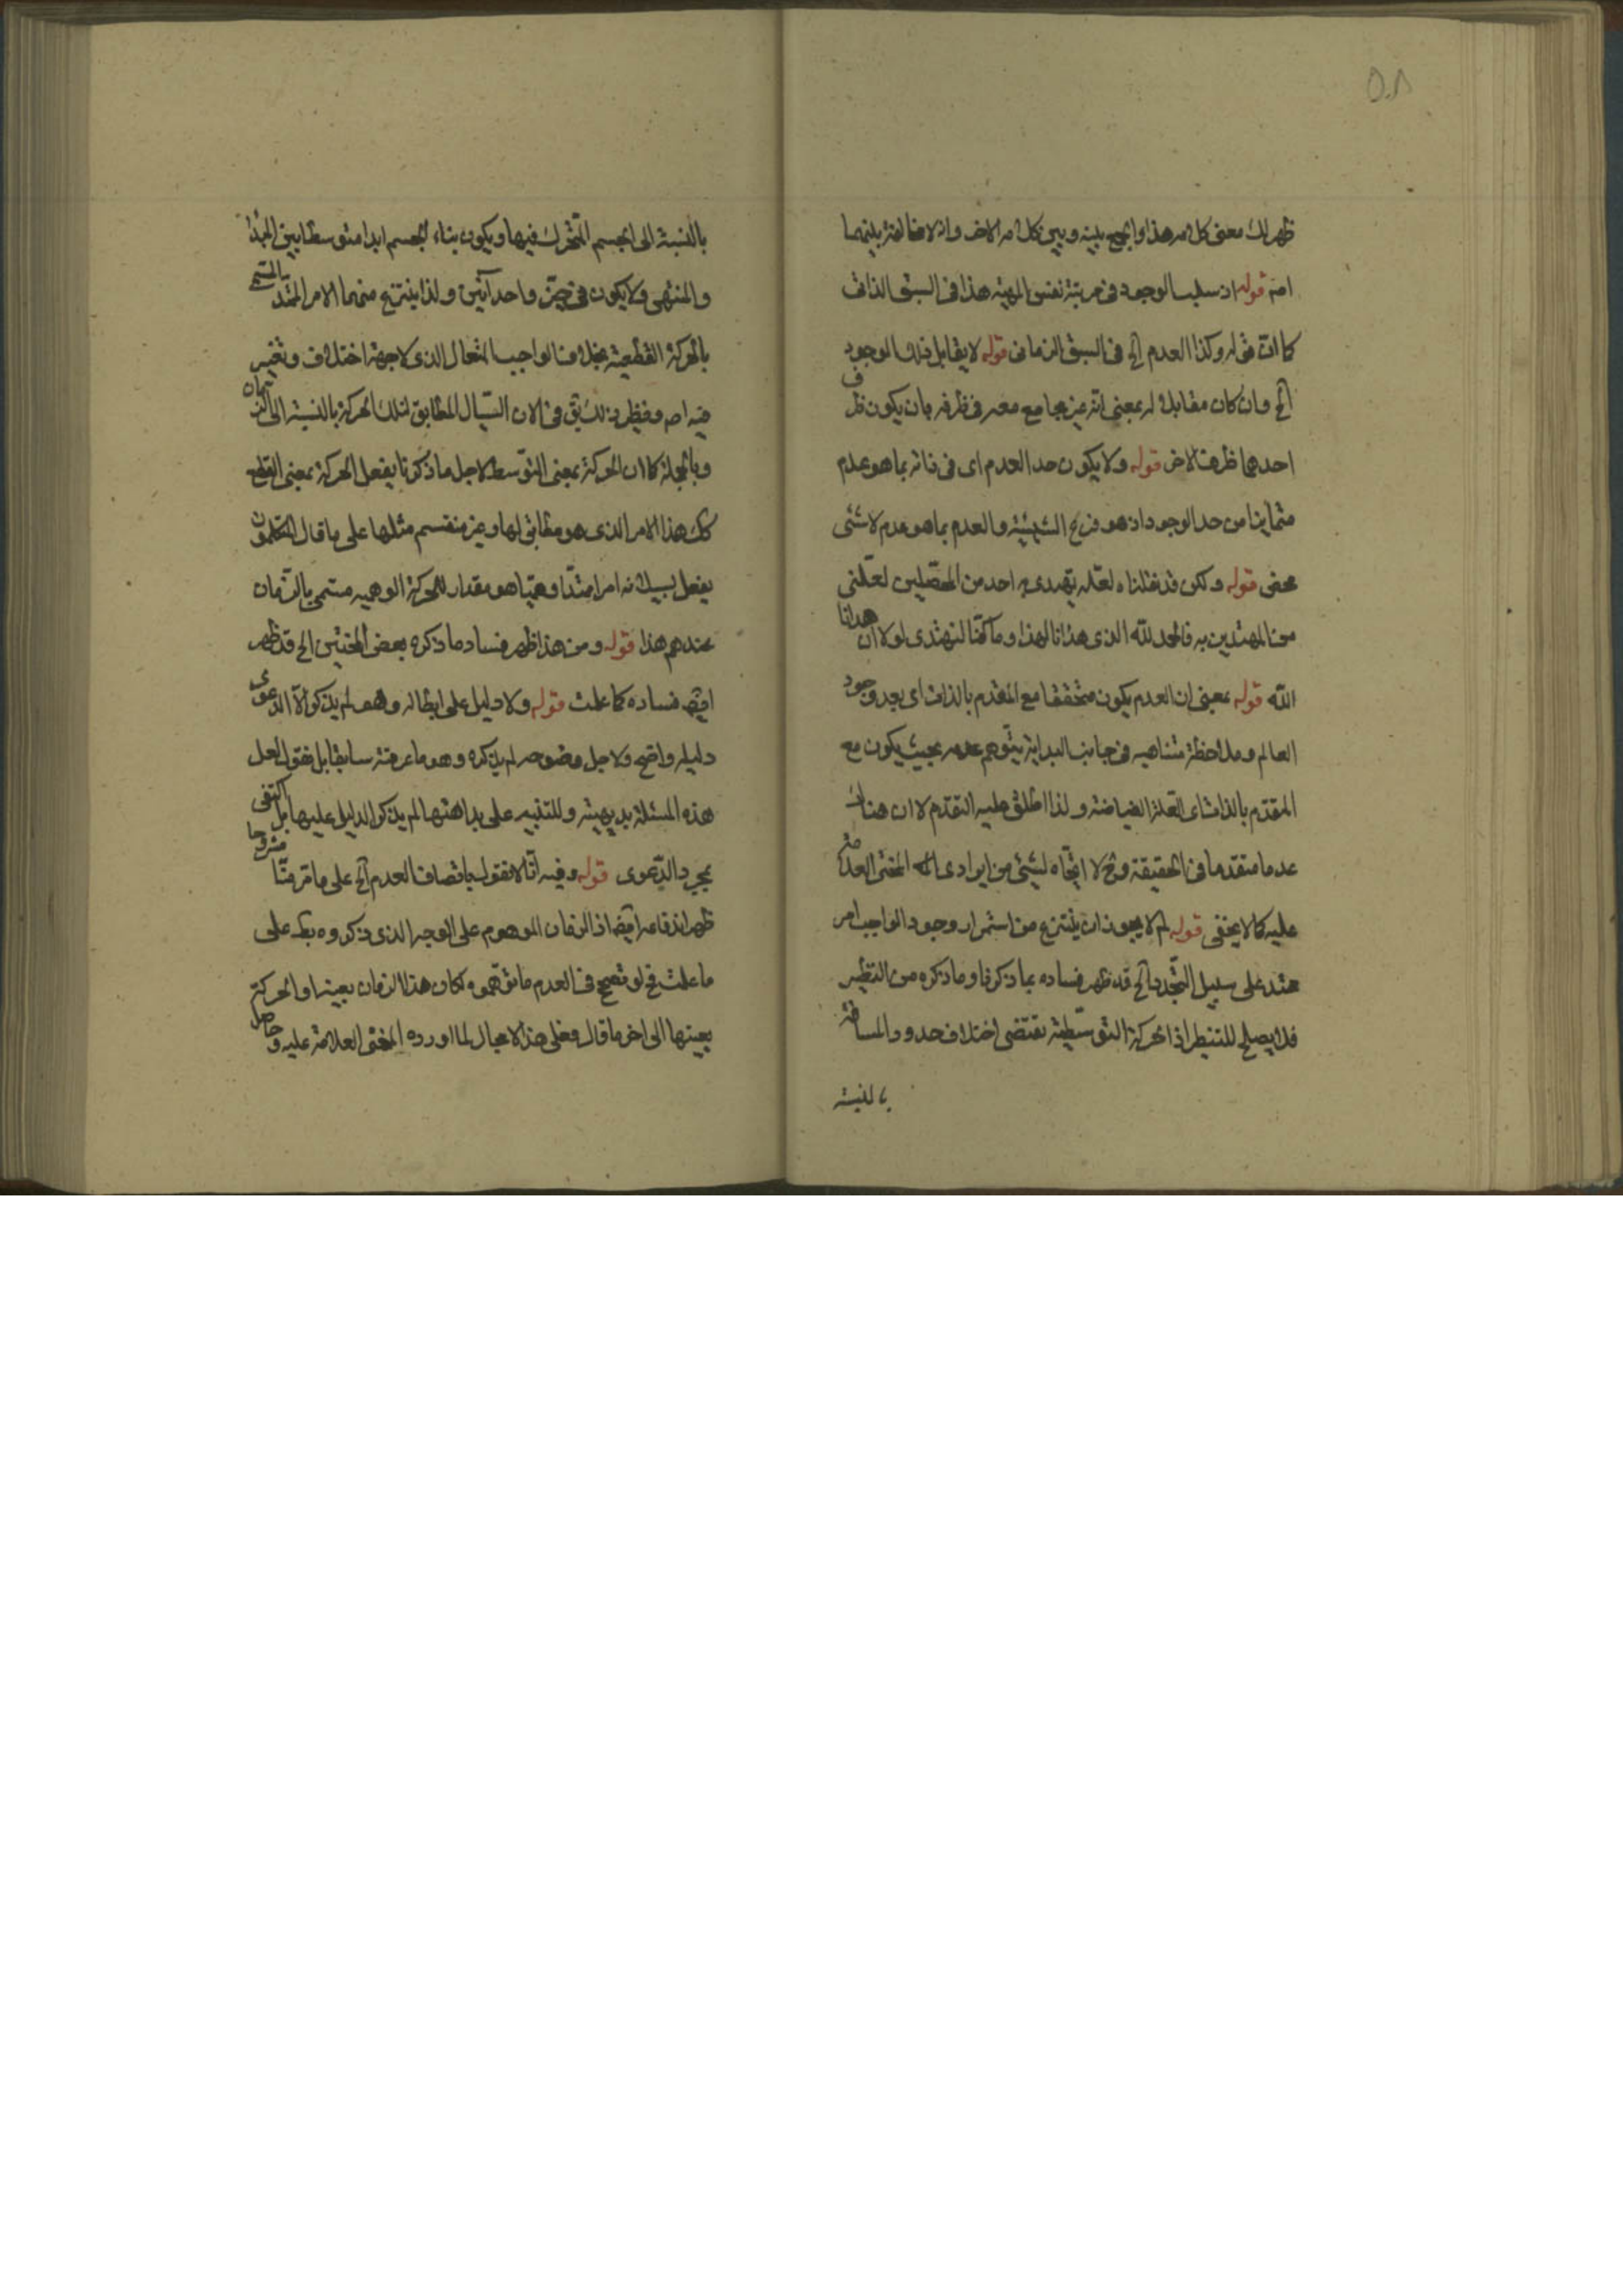 ٥٠٨
ظهر لك معنى كلامه هذا والجمع بينه وبين كلامه الاخر وان لا مخالفة بينهما
اصلا قوله اذ سلب الوجود فى مرتبة نفس المهية هذا فى السبق الذاتى
كما ان قوله وكذا العدم الخ فى السبق الزمانى قوله لا يقابل ذلك الوجود
الخ وان كان مقابلا له بمعنى انه غير مجامع معه فى ظرفه بان يكون ظرف
احدهما ظرف الاخر قوله ولا يكون حد العدم اى فى ذاته بما هو عدم
متمايزا من حد الوجود اذ هو فرع الشيئية والعدم بما هو عدم لا شئى
محض قوله ولكن قد نقلناه لعله يهتدى به احد من المحصلين لعلنى
من المهتدين به فالحمد لله الذى هدانا لهذا وما كنا لنهتدى لولا ان هدانا
الله قوله بمعنى ان العدم يكون متحققا مع المتقدم بالذات اى بعد وجود
العالم وملاحظة متناهيه فى جانب البداية يتوهم عدمه بحيث يكون مع
المتقدم بالذات اى العلة الفياضة ولذا اطلق عليه التقدم لا ان هناك
عدما متقدما فى الحقيقة وح لا اتجاه لشئى من ايرادى المحشى العلامة
عليه كما لا يخفى قوله لم لا يجوز ان ينتزع من استمرار وجود الواجب امر
ممتد على سبيل التجدد الخ قد ظهر فساده بما ذكرنا وما ذكره من النظير
فلا يصلح للتنظير اذ الحركة التوسطية تقتضى اختلاف حدود المسافة
بالنسبة
بالنسبة الى الجسم المتحرك فيها ويكون بناء الجسم ابدا متوسطا بين المبدا
والمنتهى ولا يكون فى حيّز واحد آنين ولذا ينتزع منهما الامر الممتد المسمى
بالحركة القطعية بخلاف الواجب تعالى الذى لا جهة اختلاف وتغير
فيه اصلا ونظير ذلك بق فى الان السيّال المطابق لتلك الحركة بالنسبة الى الزمان
وبالجملة كما ان الحركة بمعنى التوسط لاجل ما ذكرنا يفعل الحركة بمعنى القطع
كك هذا الامر الذى هو مطابق لها وغير منقسم مثلها على ما قال المتكلمون
يفعل بسيلانه امرا ممتدا وهميا هو مقدار للحركة الوهميه مسمى بالزمان
عندهم هذا قوله ومن هذا ظهر فساد ما ذكره بعض المحشين الخ قد ظهر
ايضا فساده كما علمت قوله ولا دليل على ابطاله وهو لم يذكر الا الدعوى
دليله واضح ولاجل وضوحه لم يذكره وهو ما عرفته سابقا بل نقول لعل
هذه المسئلة بديهية وللتنبيه على بداهتها لم يذكر الدليل عليها بل اكتفى
بمجرد الدعوى قوله وفيه انا لا نقول باتصاف العدم الخ على ما مر منا مشروحا
ظهر اندفاعه ايضا اذ الزمان الموهوم على الوجه الذى ذكروه بط على
ما علمت فح لو تصحح فى العدم ما توهموه لكان هذا الزمان بعينه والحركة
بعينها الى اخر ما قال فعلى هذا لا مجال لما اورده المحشى العلامة عليه وحاصل